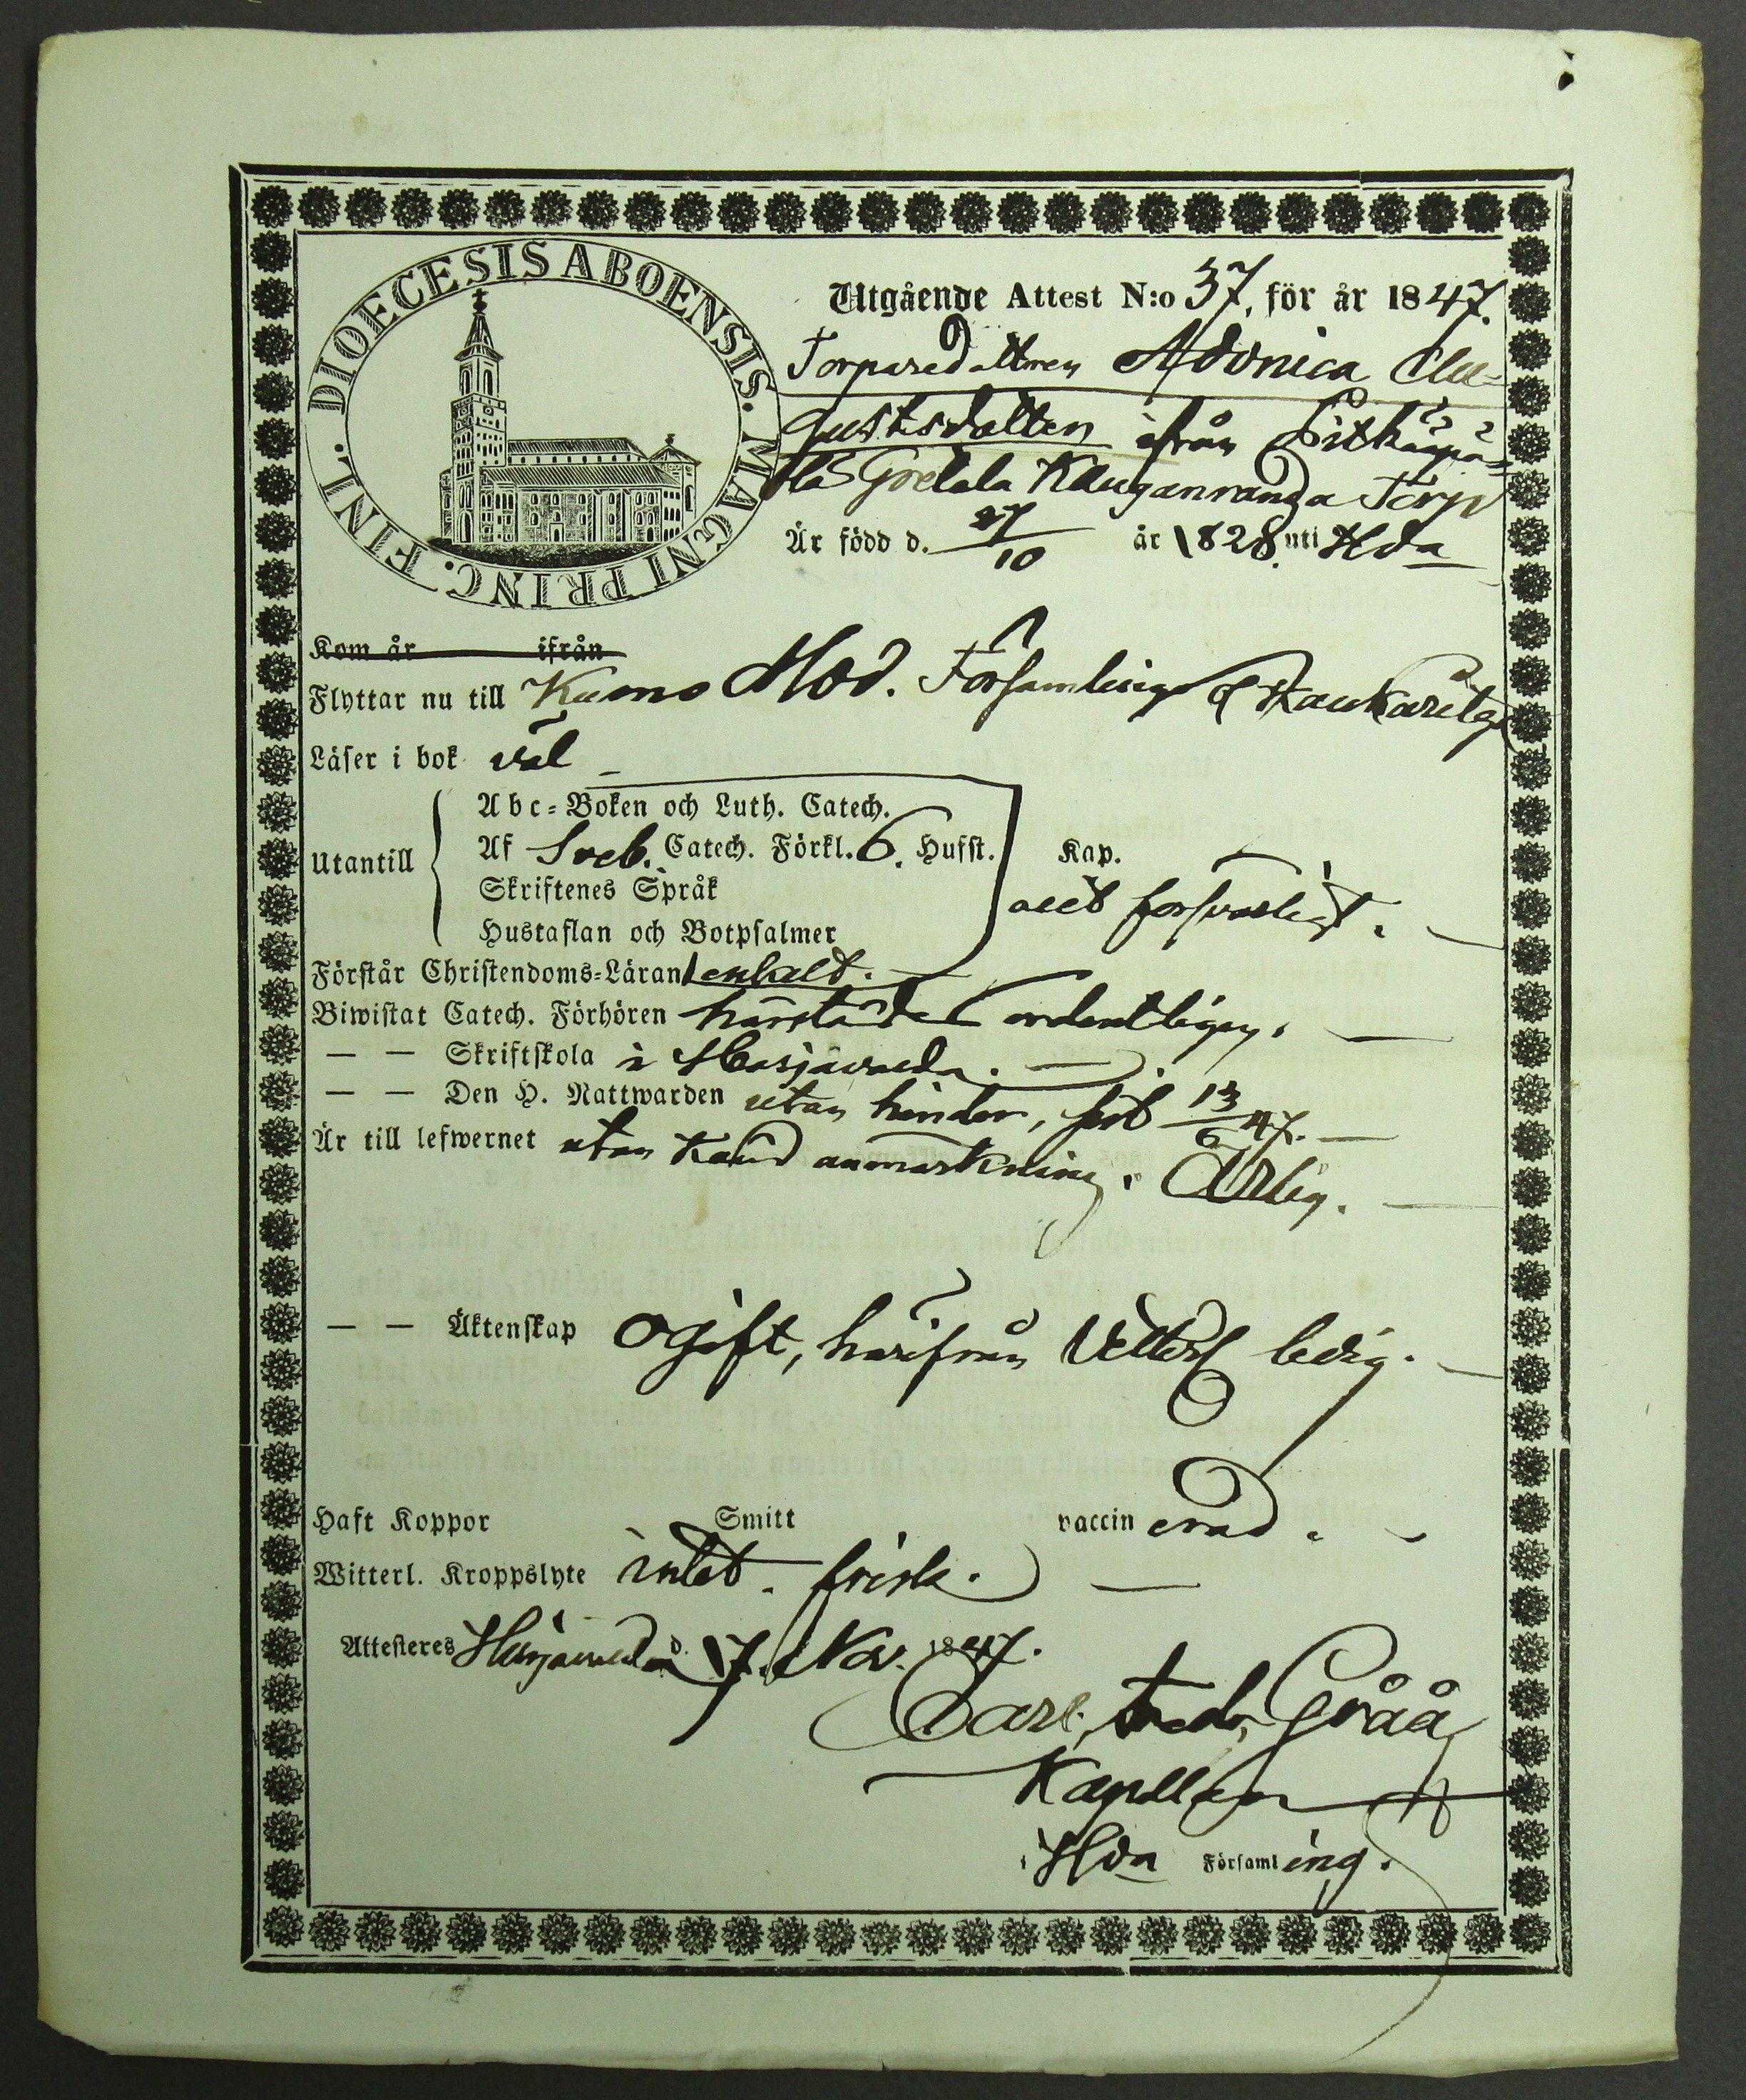 DIOECESIS ABOENSIS. MAGNI PRINC. FINL.
Utgående Attest N:o 37, för år 1847.
Torparedottren Advnica Au=
gustsdotter ifrån Pitkäpä=
lä Torp
Är född d. 27/10 år 1828. uti Hda
Kom år ifrån
Flyttar nu till Kumo Mod. Församling
Läser i bok väl
Utantill
Abc=Boken och Luth. Catech.
Af Sveb. Catech. Förkl. 6. Hufst. Kap.
Skriftenes Språk
Hustaflan och Botpsalmer
allt försvarligt.
Förstår Christendoms=Läran enkelt.
Biwistat Catech. Förhören härstädes ordentligen.
— — Skriftskola i Harjavalda.
— — Den H. Nattwarden utan hinder, sist 13/6 47.
Är till lefwernet utan känd anmärkning. Ärlig.
— — Äktenskap Ogift, härifrån Vetterl. ledig.
Haft Koppor Smitt vaccinerad.
Witterl. Kroppslyte intet. frisk.
Attesteres Harjavalda d. 17. Nov. 1847.
Carl Fredr. Gråå
Kapellan
i Hda Församling.